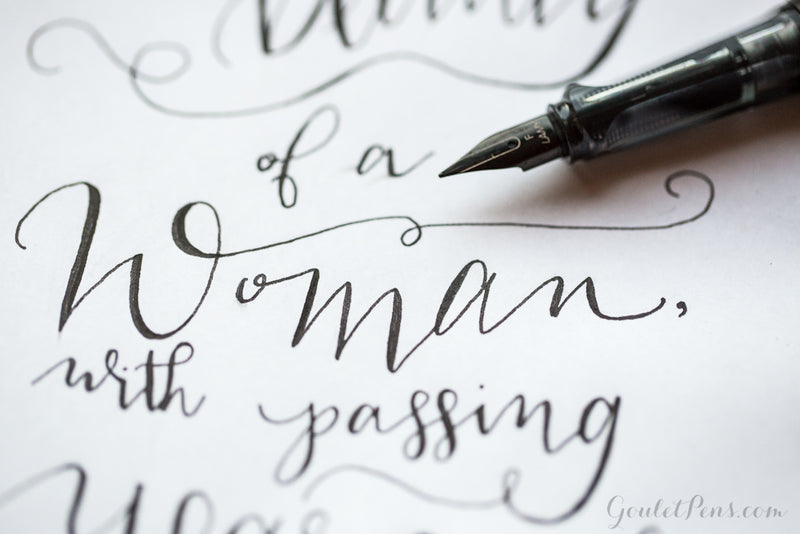 of a
Woman,
with passing
LAMY
F
GouletPens.com